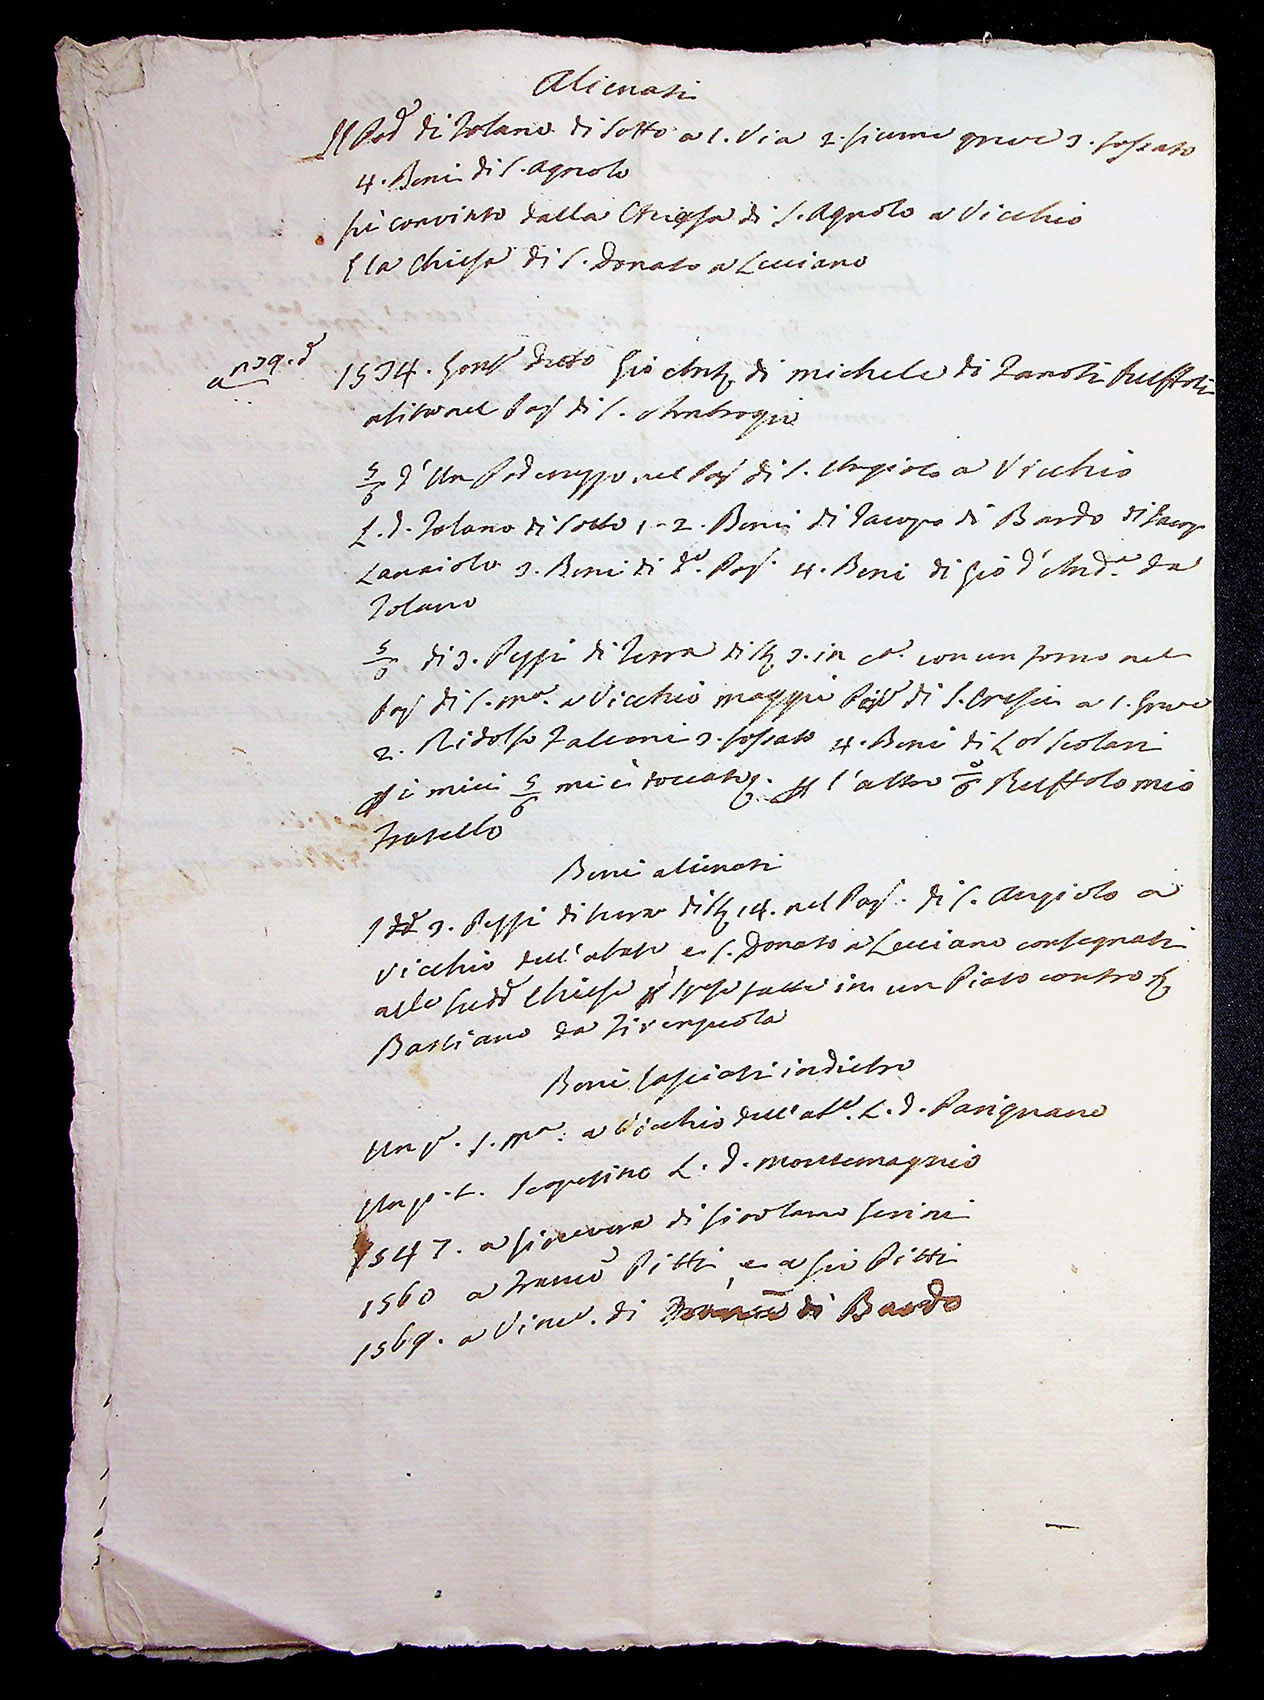 Alienati
Il Pod.e di Tolano di Sotto a 1. Via 2. fiume greve 3. fossato
4. Beni di S. Agnolo
fu convinto dalla Chiesa di S. Agnolo a Vicchio
E la Chiesa di S. Donato a Luciano
a n 39. d
1534. Gonf.e detto Gio Ant. di michele di Zanobi
abito nel Pop di S. Ambrogio
5/6 d'Un Poderuzzo nel Pop di S. Angiolo a Vicchio
L. d. Tolano di Sotto 1- 2. Beni di Jacopo di Bardo di Jacop
Lanaiolo 3. Beni di d.o Pop. 4. Beni di Gio d'And.a da
Tolano
5/6 di 3. Pezzi di Terra di 3. in c.a con un forno nel
Pop di S. M.a a Vicchio maggi di S. Cresci a 1. Greve
2. Ridolfo Falconi 3. fossato 4. Beni di Lor Scolari
i miei 5/6 mi è toccato l'altro mio
fratello
Beni alienati
3. Pezzi di terra di 14. nel Pop. di S. Angiolo a
Vicchio dell'abate e S. Donato a Luciano consegnati
alle sudd Chiese p spese fatte in un Piato contro
Bastiano da Firenzuola
Beni lasciati indietro
Un p.o S. M.a a Vicchio dell'ab.e L. d. Parignano
Un p. t. Scopetino L. d. Montemagnio
1547. a Ginevera di Girolamo Gerini
1560 a Franc.o Pitti e a Gio Pitti
1569. a Vinc.o di di Bardo